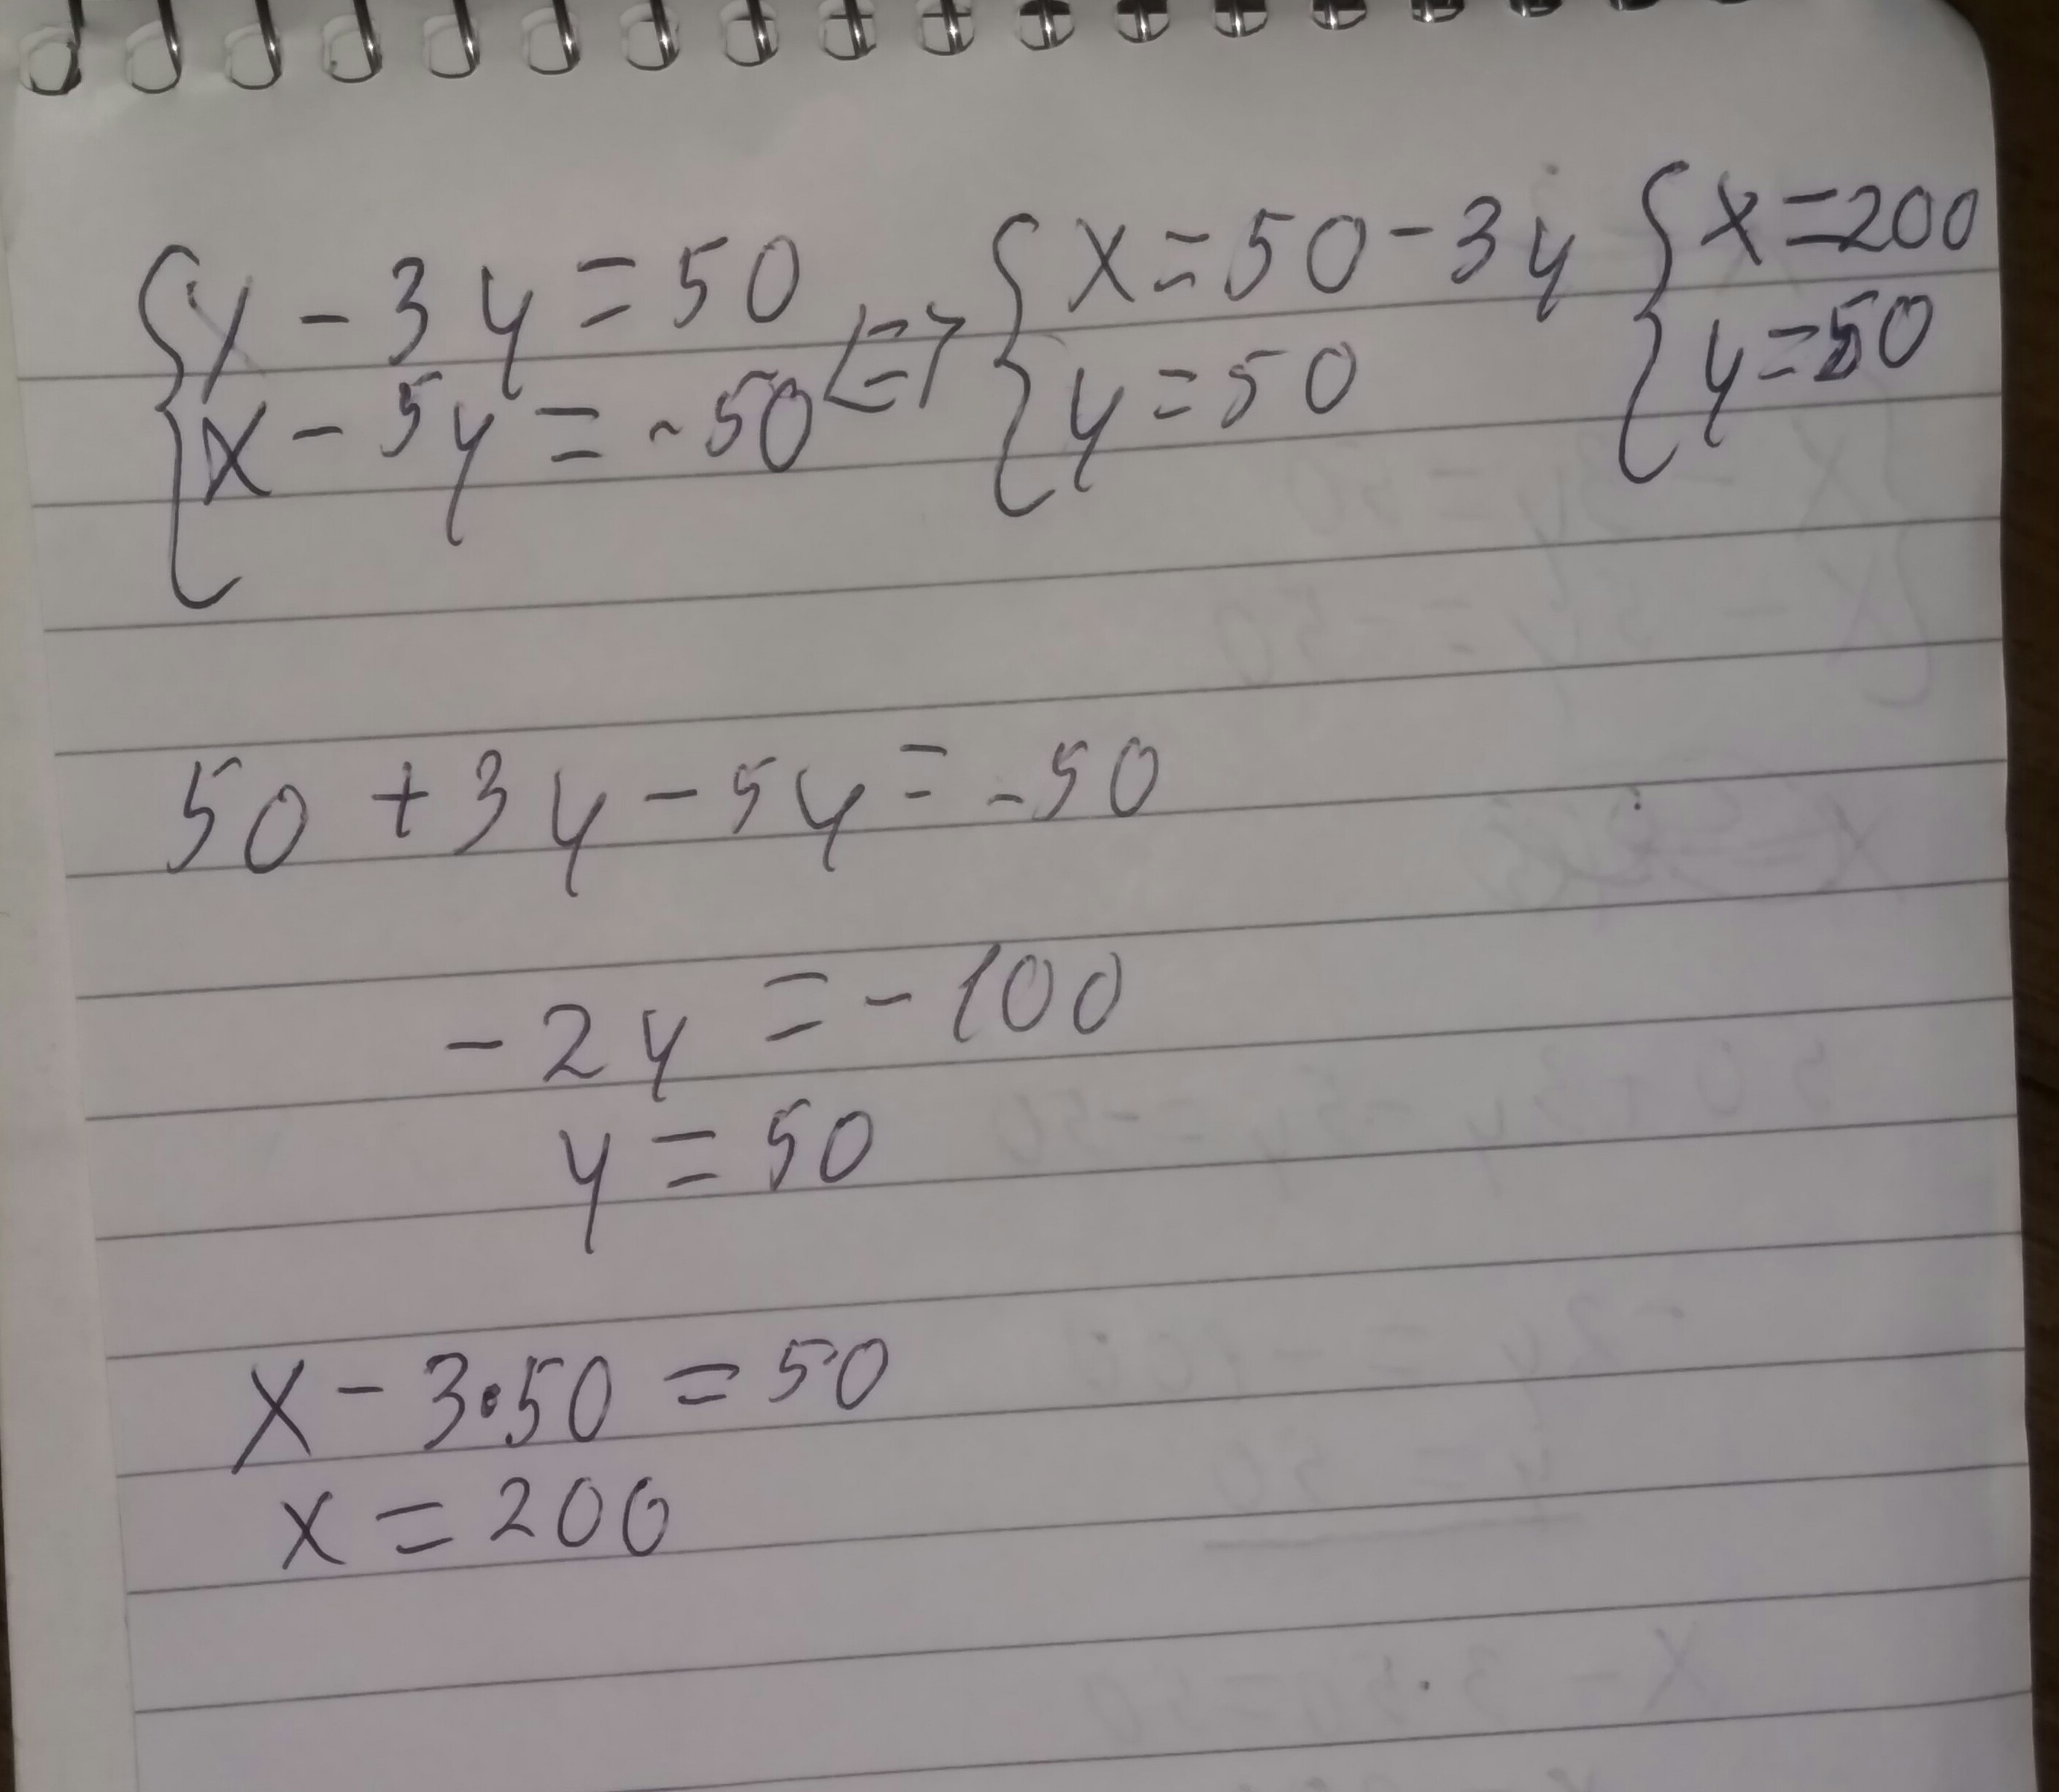 { x - 3y = 50 <=> { x = 50 - 3y { x = 200
{ x - 5y = -50 { y = 50 { y = 50
50 + 3y - 5y = -50
-2y = -100
y = 50
x - 3·50 = 50
x = 200